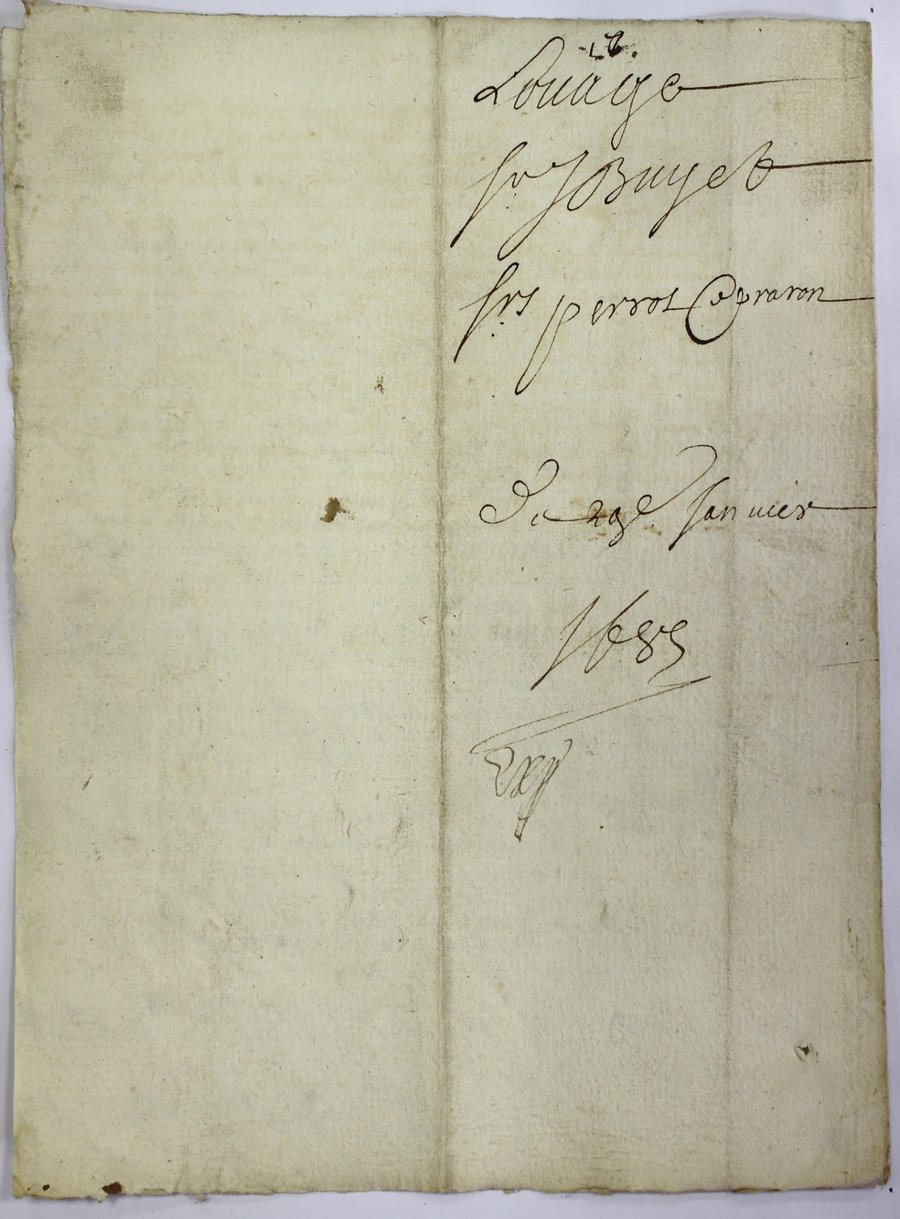 Louage
Sr J Buyet
Srs perrot Et praron
Du 29e Janvier
1685
Exp